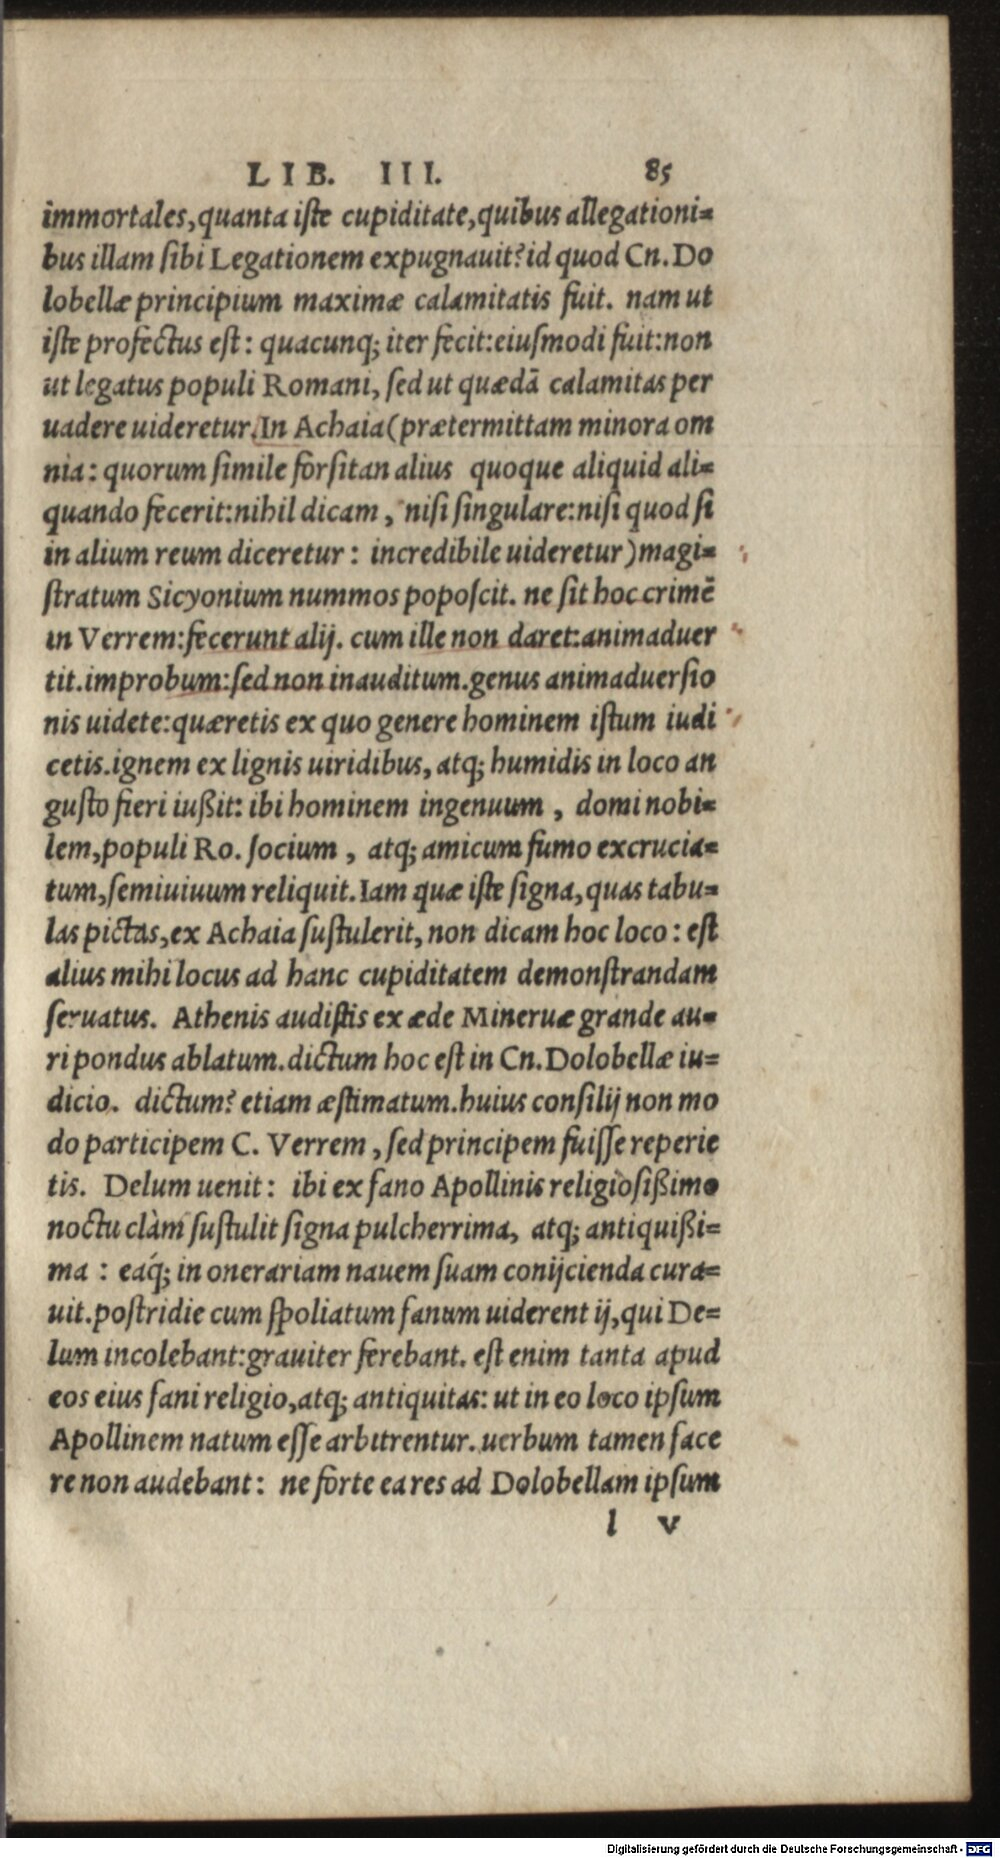 LIB. III. 85
immortales,quanta iſte cupiditate,quibus allegationi=
bus illam ſibi Legationem expugnauit?id quod Cn.Do
lobellæ principium maximæ calamitatis fuit. nam ut
iſte profectus eſt: quacunq; iter fecit:eiuſmodi fuit:non
ut legatus populi Romani, ſed ut quædā calamitas per
uadere uideretur.In Achaia(prætermittam minora om
nia: quorum ſimile forſitan alius quoque aliquid ali=
quando fecerit:nihil dicam, niſi ſingulare:niſi quod ſi
in alium reum diceretur: incredibile uideretur)magi=
ſtratum Sicyonium nummos popoſcit. ne ſit hoc crimē
in Verrem:fecerunt alij. cum ille non daret:animaduer
tit.improbum:ſed non inauditum.genus animaduerſio
nis uidete:quæretis ex quo genere hominem iſtum iudi
cetis.ignem ex lignis uiridibus, atq; humidis in loco an
guſto fieri iußit: ibi hominem ingenuum, domi nobi=
lem,populi Ro. ſocium, atq; amicum fumo excrucia=
tum,ſemiuiuum reliquit.Iam quæ iſte ſigna,quas tabu=
las pictas,ex Achaia ſuſtulerit, non dicam hoc loco: eſt
alius mihi locus ad hanc cupiditatem demonſtrandam
ſeruatus. Athenis audiſtis ex æde Mineruæ grande au=
ri pondus ablatum.dictum hoc eſt in Cn.Dolobellæ iu=
dicio. dictum? etiam æſtimatum.huius conſilij non mo
do participem C. Verrem, ſed principem fuiſſe reperie
tis. Delum uenit: ibi ex fano Apollinis religioſißimo
noctu clàm ſuſtulit ſigna pulcherrima, atq; antiquißi=
ma: eáq; in onerariam nauem ſuam conijcienda cura=
uit.poſtridie cum ſpoliatum fanum uiderent ij,qui De=
lum incolebant:grauiter ferebant. eſt enim tanta apud
eos eius fani religio,atq; antiquitas: ut in eo loco ipſum
Apollinem natum eſſe arbitrentur. uerbum tamen face
re non audebant: ne forte ea res ad Dolobellam ipſum
l v
Digitalisierung gefördert durch die Deutsche Forschungsgemeinschaft - DFG